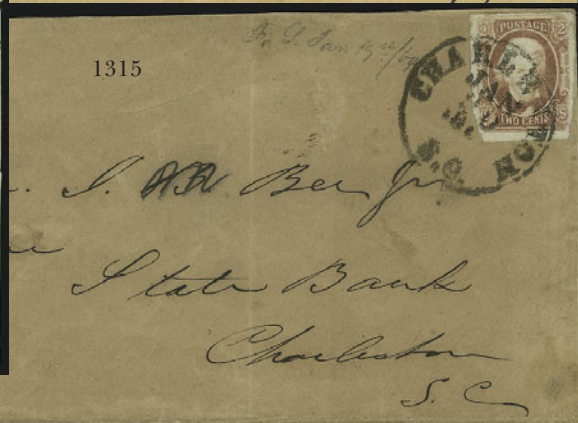 1315
POSTAGE
TWO CENTS
CHARLESTON
JAN
S.C.
Bee Jr
State Bank
Charleston
S. C